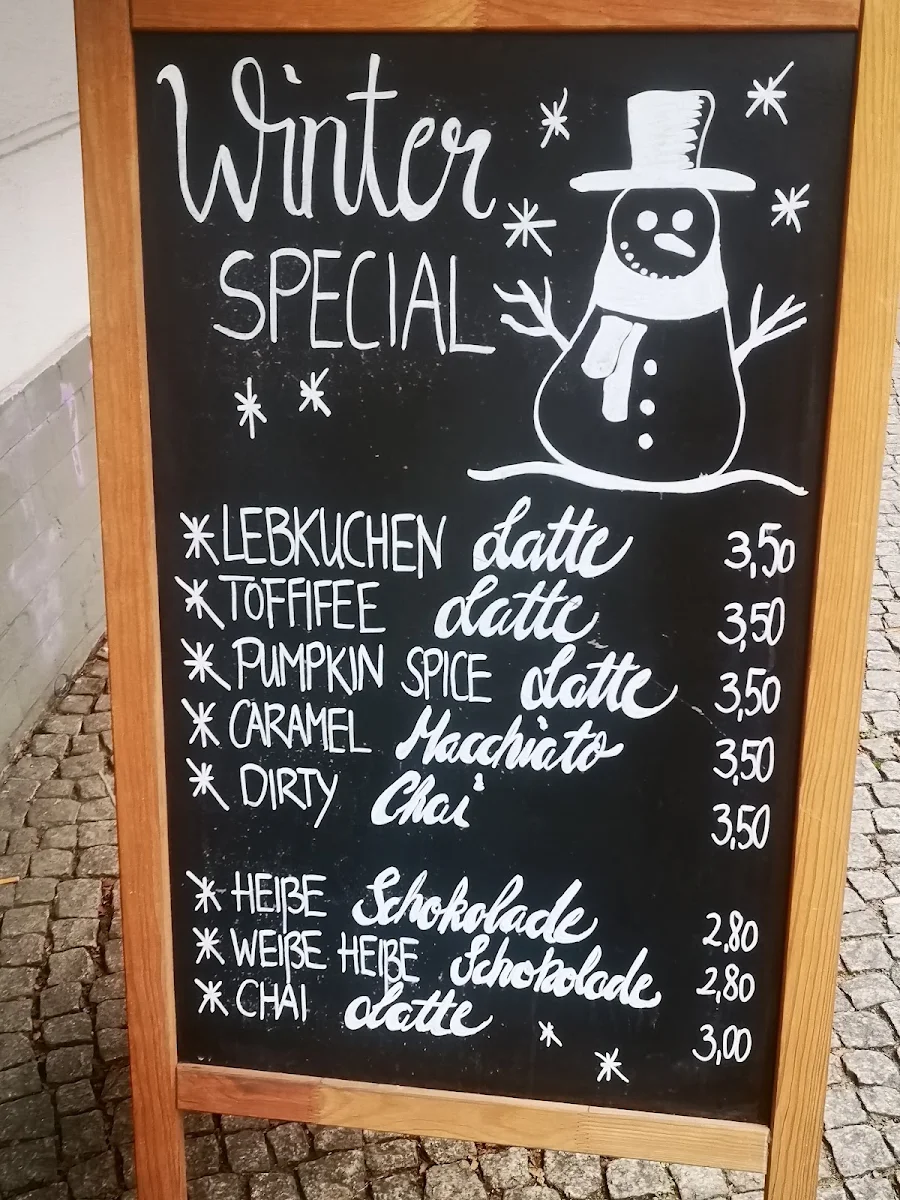 Winter
SPECIAL
LEBKUCHEN Latte 3,50
TOFFIFEE Latte 3,50
PUMPKIN SPICE Latte 3,50
CARAMEL Macchiato 3,50
DIRTY Chai 3,50
HEIßE Schokolade 2,80
WEIßE HEIßE Schokolade 2,80
CHAI Latte 3,00